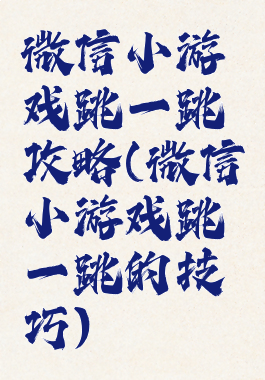 微信小游
戏跳一跳
攻略(微信
小游戏跳
一跳的技
巧)